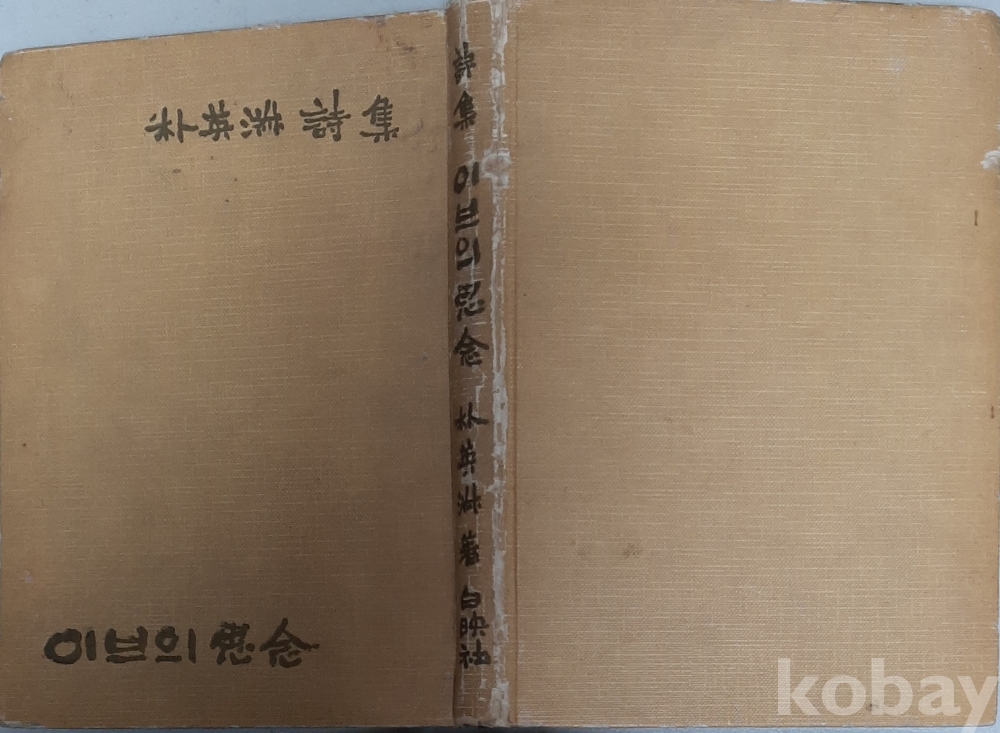 朴英淑 詩集
이브의 思念
詩集 이브의 思念 朴英淑 著 白映社
kobay